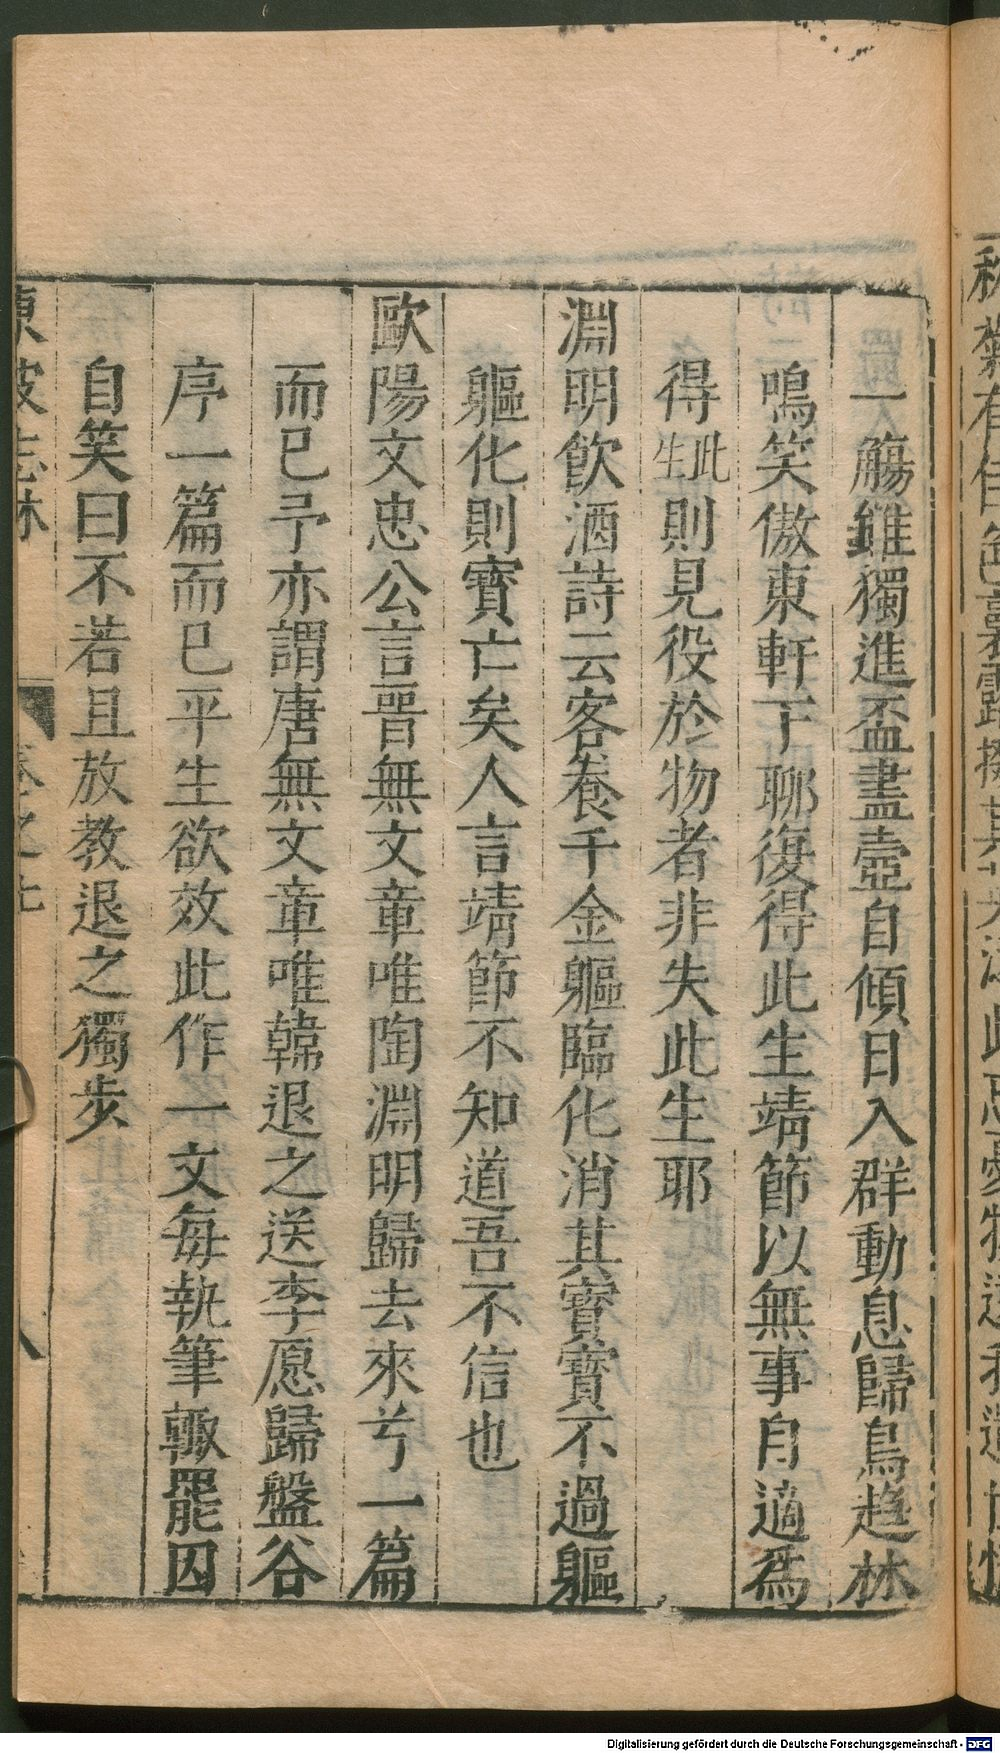 秋菊有佳色裛露掇其英汎此忘憂物遠我遺世情
一觴雖獨進盃盡壺自傾日入群動息歸鳥趍林
鳴笑傲東軒下聊復得此生靖節以無事自適爲
得此生則見役於物者非失此生耶
淵明飲酒詩云客養千金軀臨化消其寳寳不過軀
軀化則寳亡矣人言靖節不知道吾不信也
歐陽文忠公言晉無文章唯陶淵明歸去來兮一篇
而已予亦謂唐無文章唯韓退之送李愿歸盤谷
序一篇而已平生欲效此作一文每執筆輙罷因
自笑曰不若且放教退之獨步
東坡志林 卷之
Digitalisierung gefördert durch die Deutsche Forschungsgemeinschaft - DFG